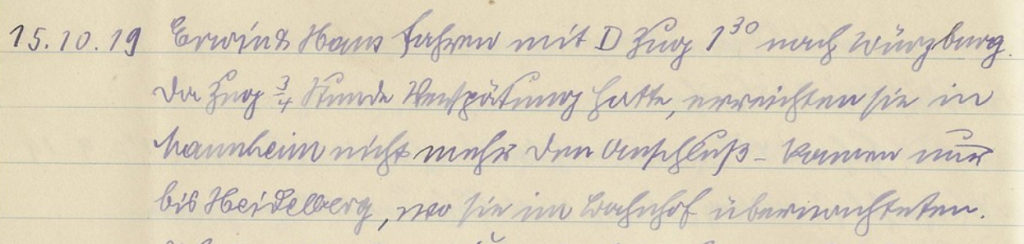 15.10.19 Erwin & Hans fahren mit D Zug 1³⁰ nach Würzburg.
Da Zug ¾ Stunde Verspätung hatte, erreichten sie in
Mannheim nicht mehr den Anschluß - kamen nur
bis Heidelberg, wo sie im Bahnhof übernachteten.